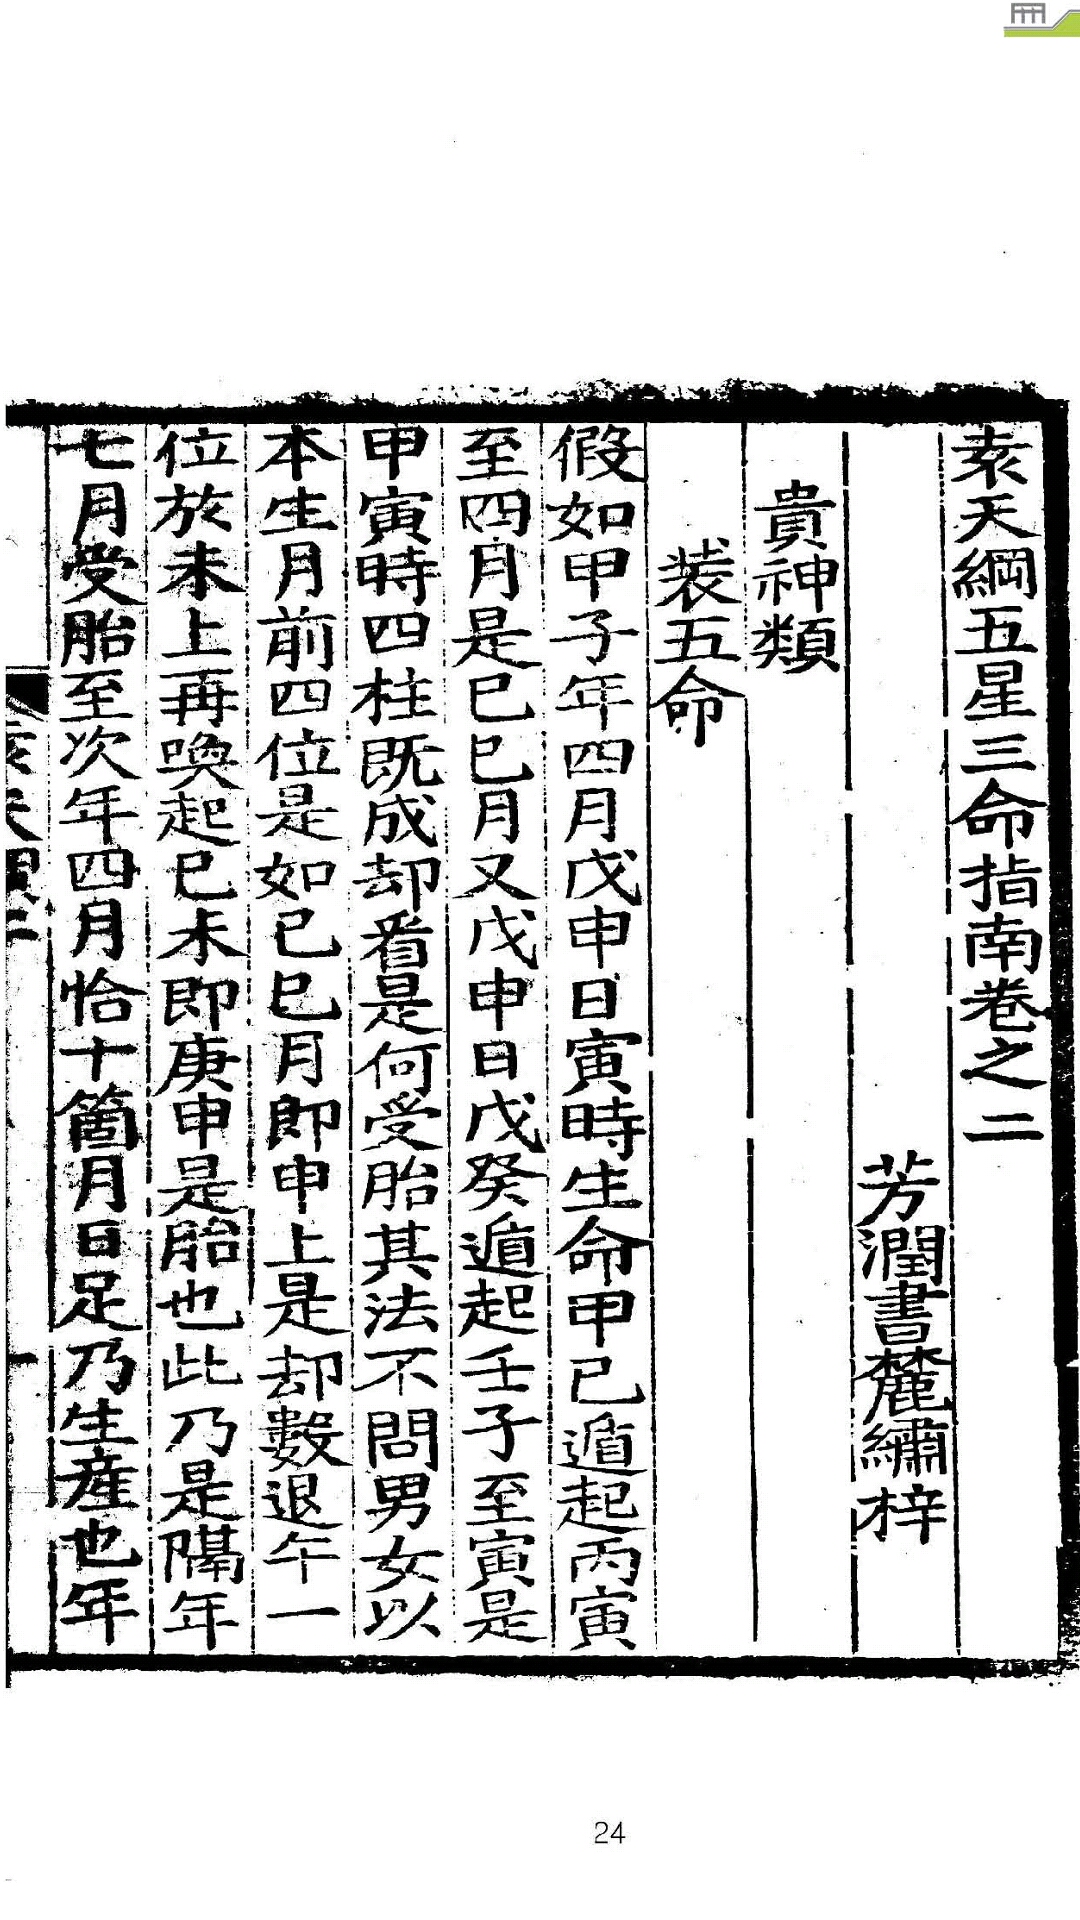 袁天綱五星三命指南卷之二
芳澗書麓繡梓
貴神類
裝五命
假如甲子年四月戊申日寅時生命甲己遁起丙寅
至四月是己巳月又戊申日戊癸遁起壬子至寅是
甲寅時四柱既成却看是何受胎其法不問男女以
本生月前四位是如己巳月即申上是却數退午一
位於未上再喚起己未即庚申是胎也此乃是隔年
七月受胎至次年四月恰十箇月日足乃生産也年
24